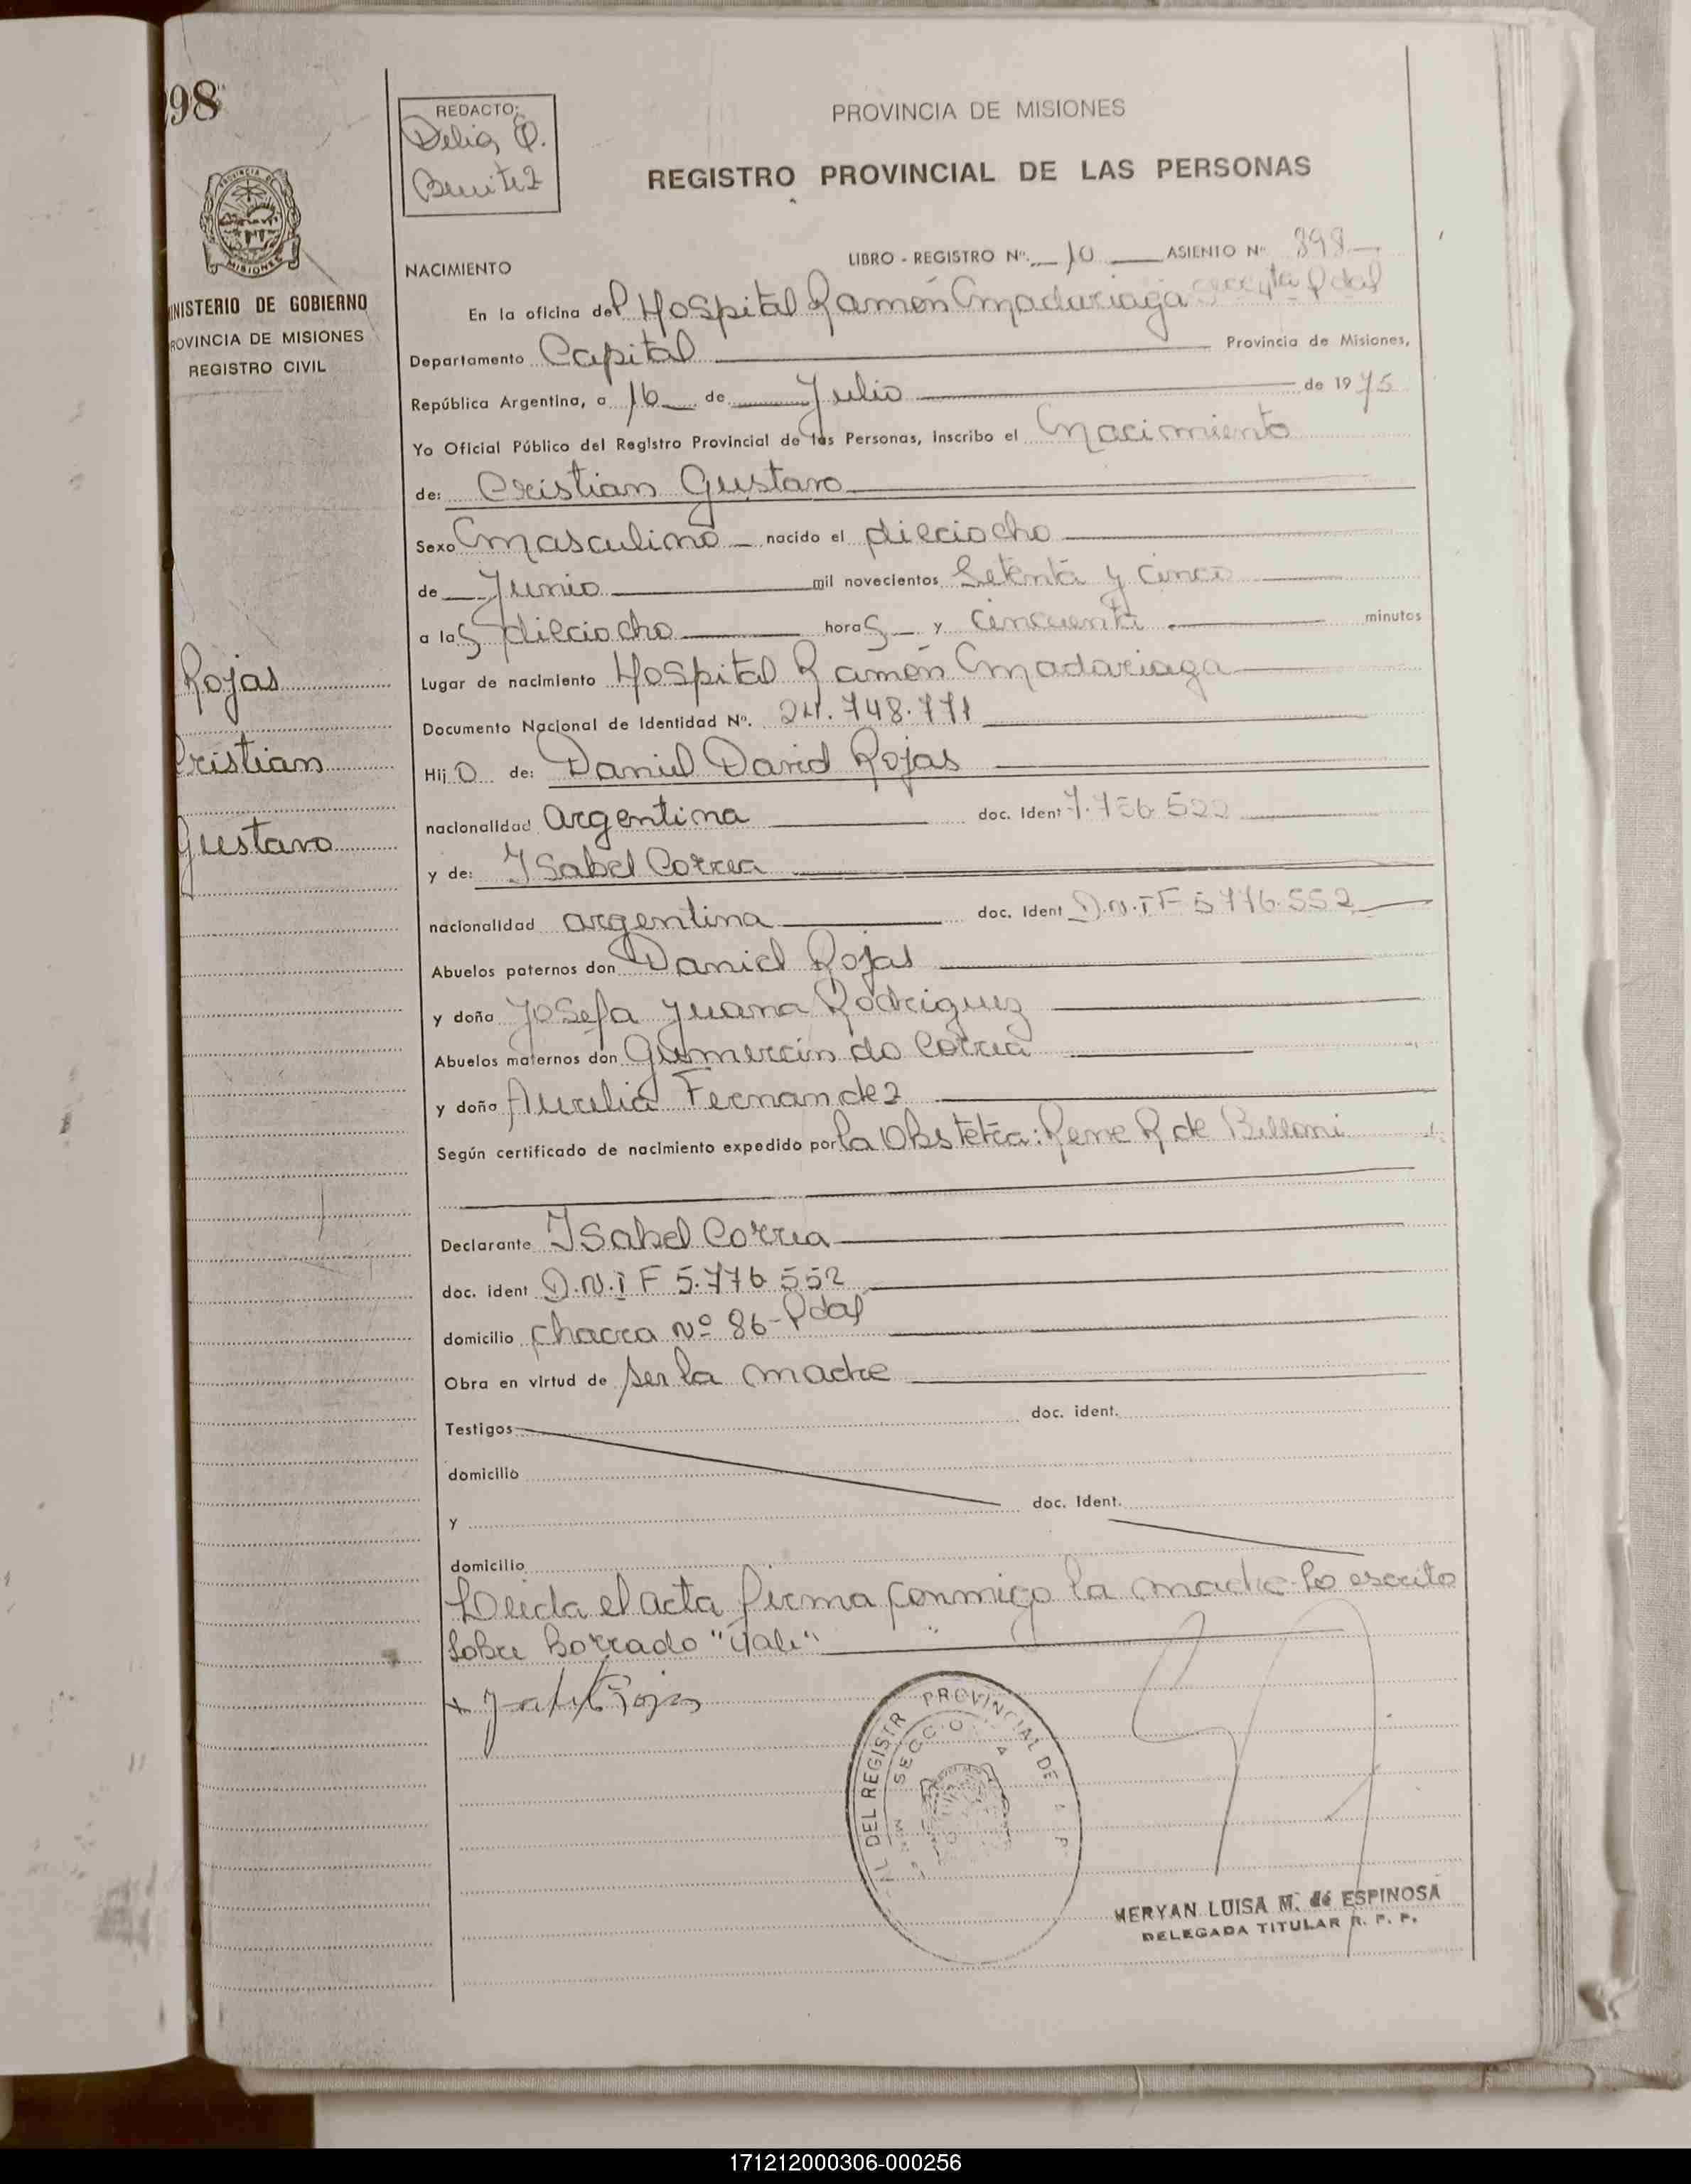 98
REDACTO:
Delia Q.
Benitez
PROVINCIA DE MISIONES
REGISTRO PROVINCIAL DE LAS PERSONAS
PROVINCIA DE
MISIONES
MINISTERIO DE GOBIERNO
PROVINCIA DE MISIONES
REGISTRO CIVIL
NACIMIENTO
LIBRO - REGISTRO Nº. 10 ASIENTO Nº 898
En la oficina del Hospital Ramón Madariaga Pdas
Departamento Capital Provincia de Misiones,
República Argentina, a 16 de Julio de 1975
Yo Oficial Público del Registro Provincial de las Personas, inscribo el Nacimiento
de: Cristian Gustavo
Sexo Masculino nacido el dieciocho
de Junio mil novecientos Setenta y Cinco
a las dieciocho horas y cincuenta minutos
Rojas
Lugar de nacimiento Hospital Ramón Madariaga
Documento Nacional de Identidad Nº. 24.748.771
Cristian
Hijo de: Daniel David Rojas
nacionalidad argentina doc. Ident 7.756.522
Gustavo
y de: Isabel Correa
nacionalidad argentina doc. Ident D.N.I F 5776.552
Abuelos paternos don Daniel Rojas
y doña Josefa Juana Rodriguez
Abuelos maternos don Gumercindo Correa
y doña Aurelia Fernandez
Según certificado de nacimiento expedido por la Obstetra: Rene R de Billoni
Declarante Isabel Correa
doc. ident D.N.I F 5.776.552
domicilio Chacra Nº 86-Pdas
Obra en virtud de ser la madre
Testigos doc. ident.
domicilio
y doc. Ident.
domicilio
Leida el acta firma conmigo la madre-lo escrito
sobre Borrado "Vale"
PROVINCIAL DE
AL DEL REGISTR
SECCIO
MERYAN LUISA M. de ESPINOSA
DELEGADA TITULAR R. P. P.
171212000306-000256